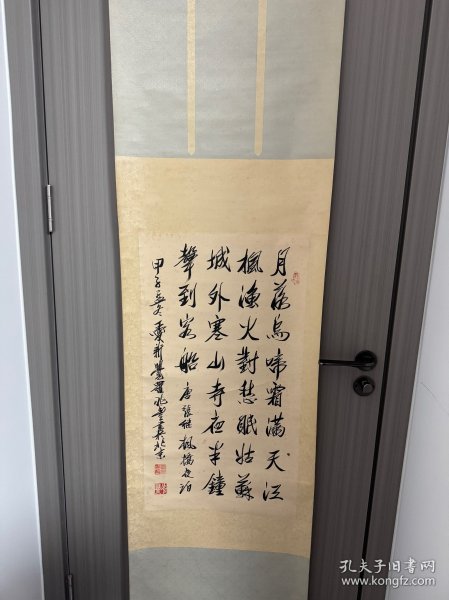 月落烏啼霜滿天江
楓漁火對愁眠姑蘇
城外寒山寺夜半鐘
聲到客船 唐張繼楓橋夜泊
甲子 冬 愛新覺羅 書於北京
孔夫子旧书网
www.kongfz.com